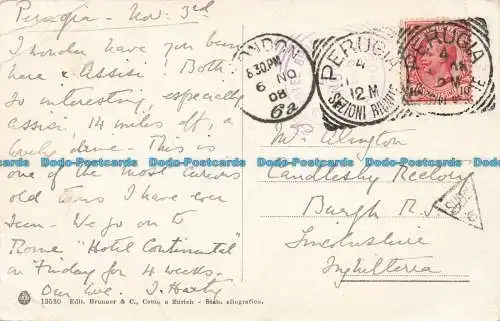 Perugia - Nov: 3rd
I wonder have you been
here & Assisi, Both
so interesting, especially
Assisi, 14 miles off, a
lovely drive - This is
one of the most curious
old towns I have ever
seen - We go on to
Rome "Hotel Continental"
on Friday for 4 weeks -
Our love. J. Harty
13530 Edit. Brunner & C., Como e Zürich - Stab. eliografico.
LONDON
6.30PM
6 NO
08
62
PERUGIA
4
12 M
SEZIONI RIUNITE
PERUGIA
4
12 M
Mr Alington
Candlesby Rectory
Burgh R.S.
Lincolnshire
Inghilterra
Dodo-Postcards Dodo-Postcards Dodo-Postcards Dodo-Postcards